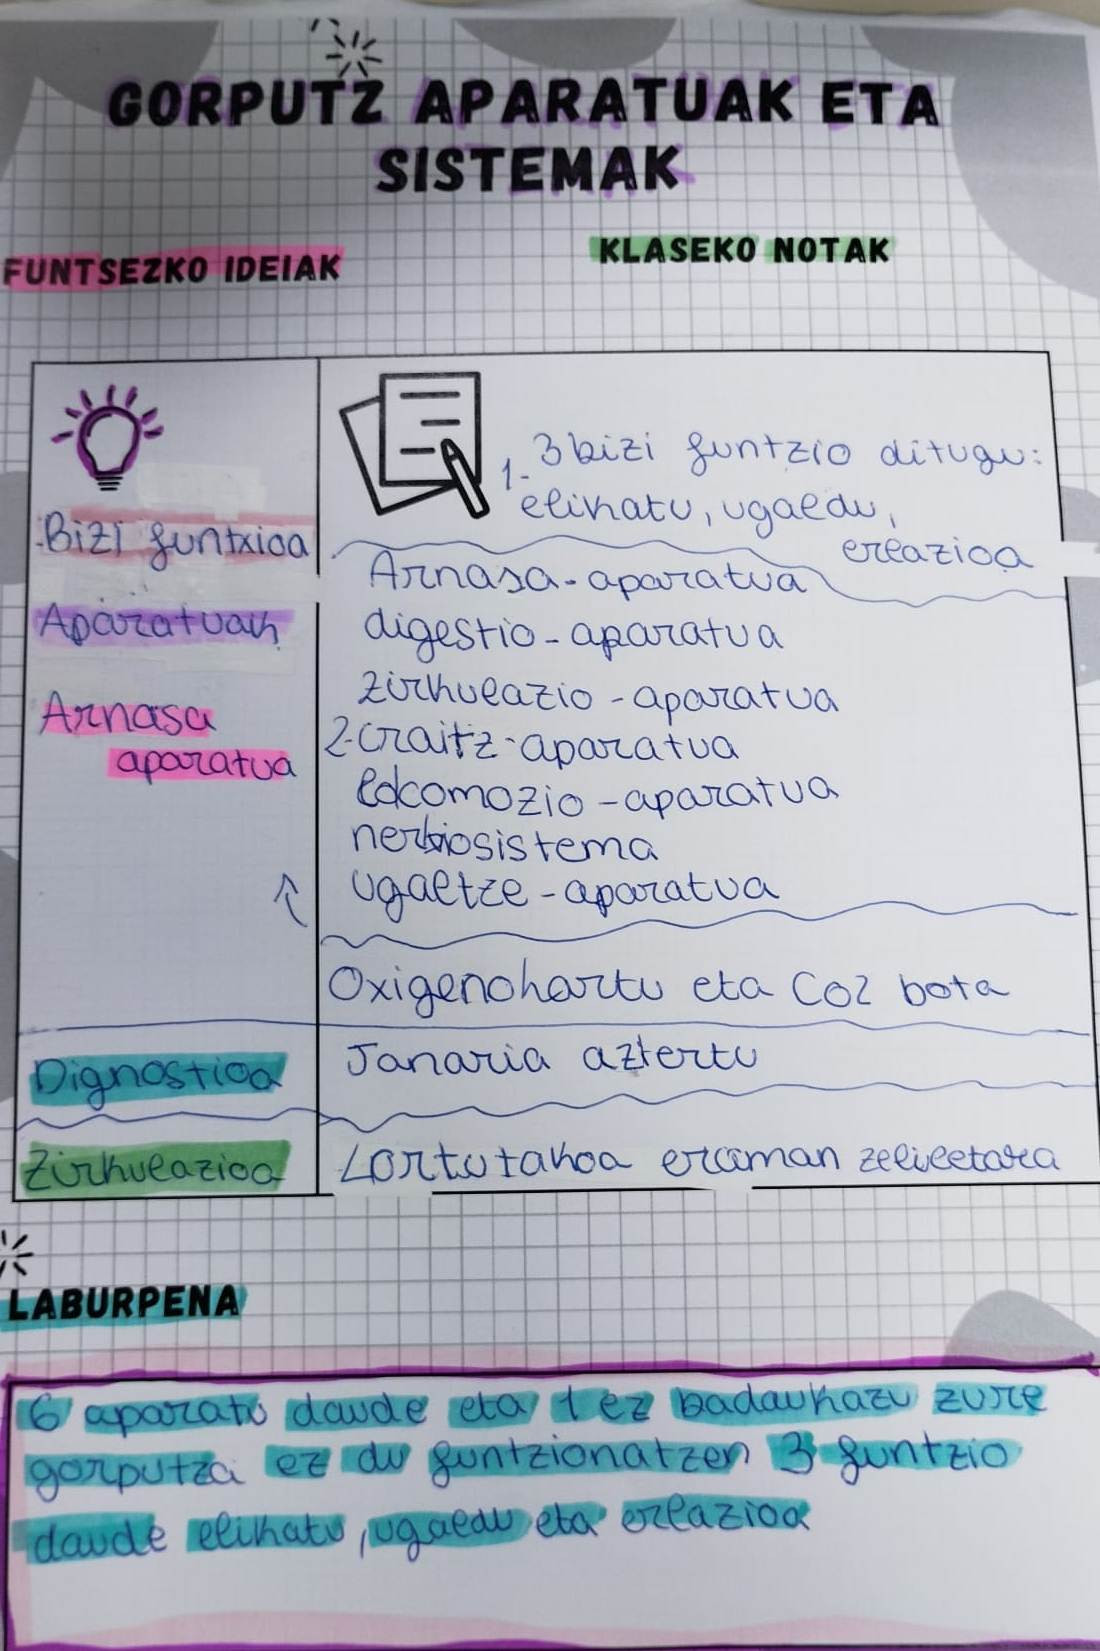 GORPUTZ APARATUAK ETA
SISTEMAK
FUNTSEZKO IDEIAK
KLASEKO NOTAK
Bizi funtxioa
1- 3 bizi funtzio ditugu:
elikatu, ugaldu,
erlazioa
Aparatuak
Arnasa-aparatua
digestio-aparatua
zirkulazio-aparatua
2-iraitz-aparatua
lokomozio-aparatua
nerbiosistema
ugaltze-aparatua
Arnasa
aparatua
Oxigenohartu eta CO2 bota
Dignostioa
Janaria aztertu
Zirkulazioa
Lortutakoa eraman zeluletara
LABURPENA
6 aparatu daude eta 1 ez badaukazu zure
gorputza ez du funtzionatzen 3 funtzio
daude elikatu, ugaldu eta erlazioa